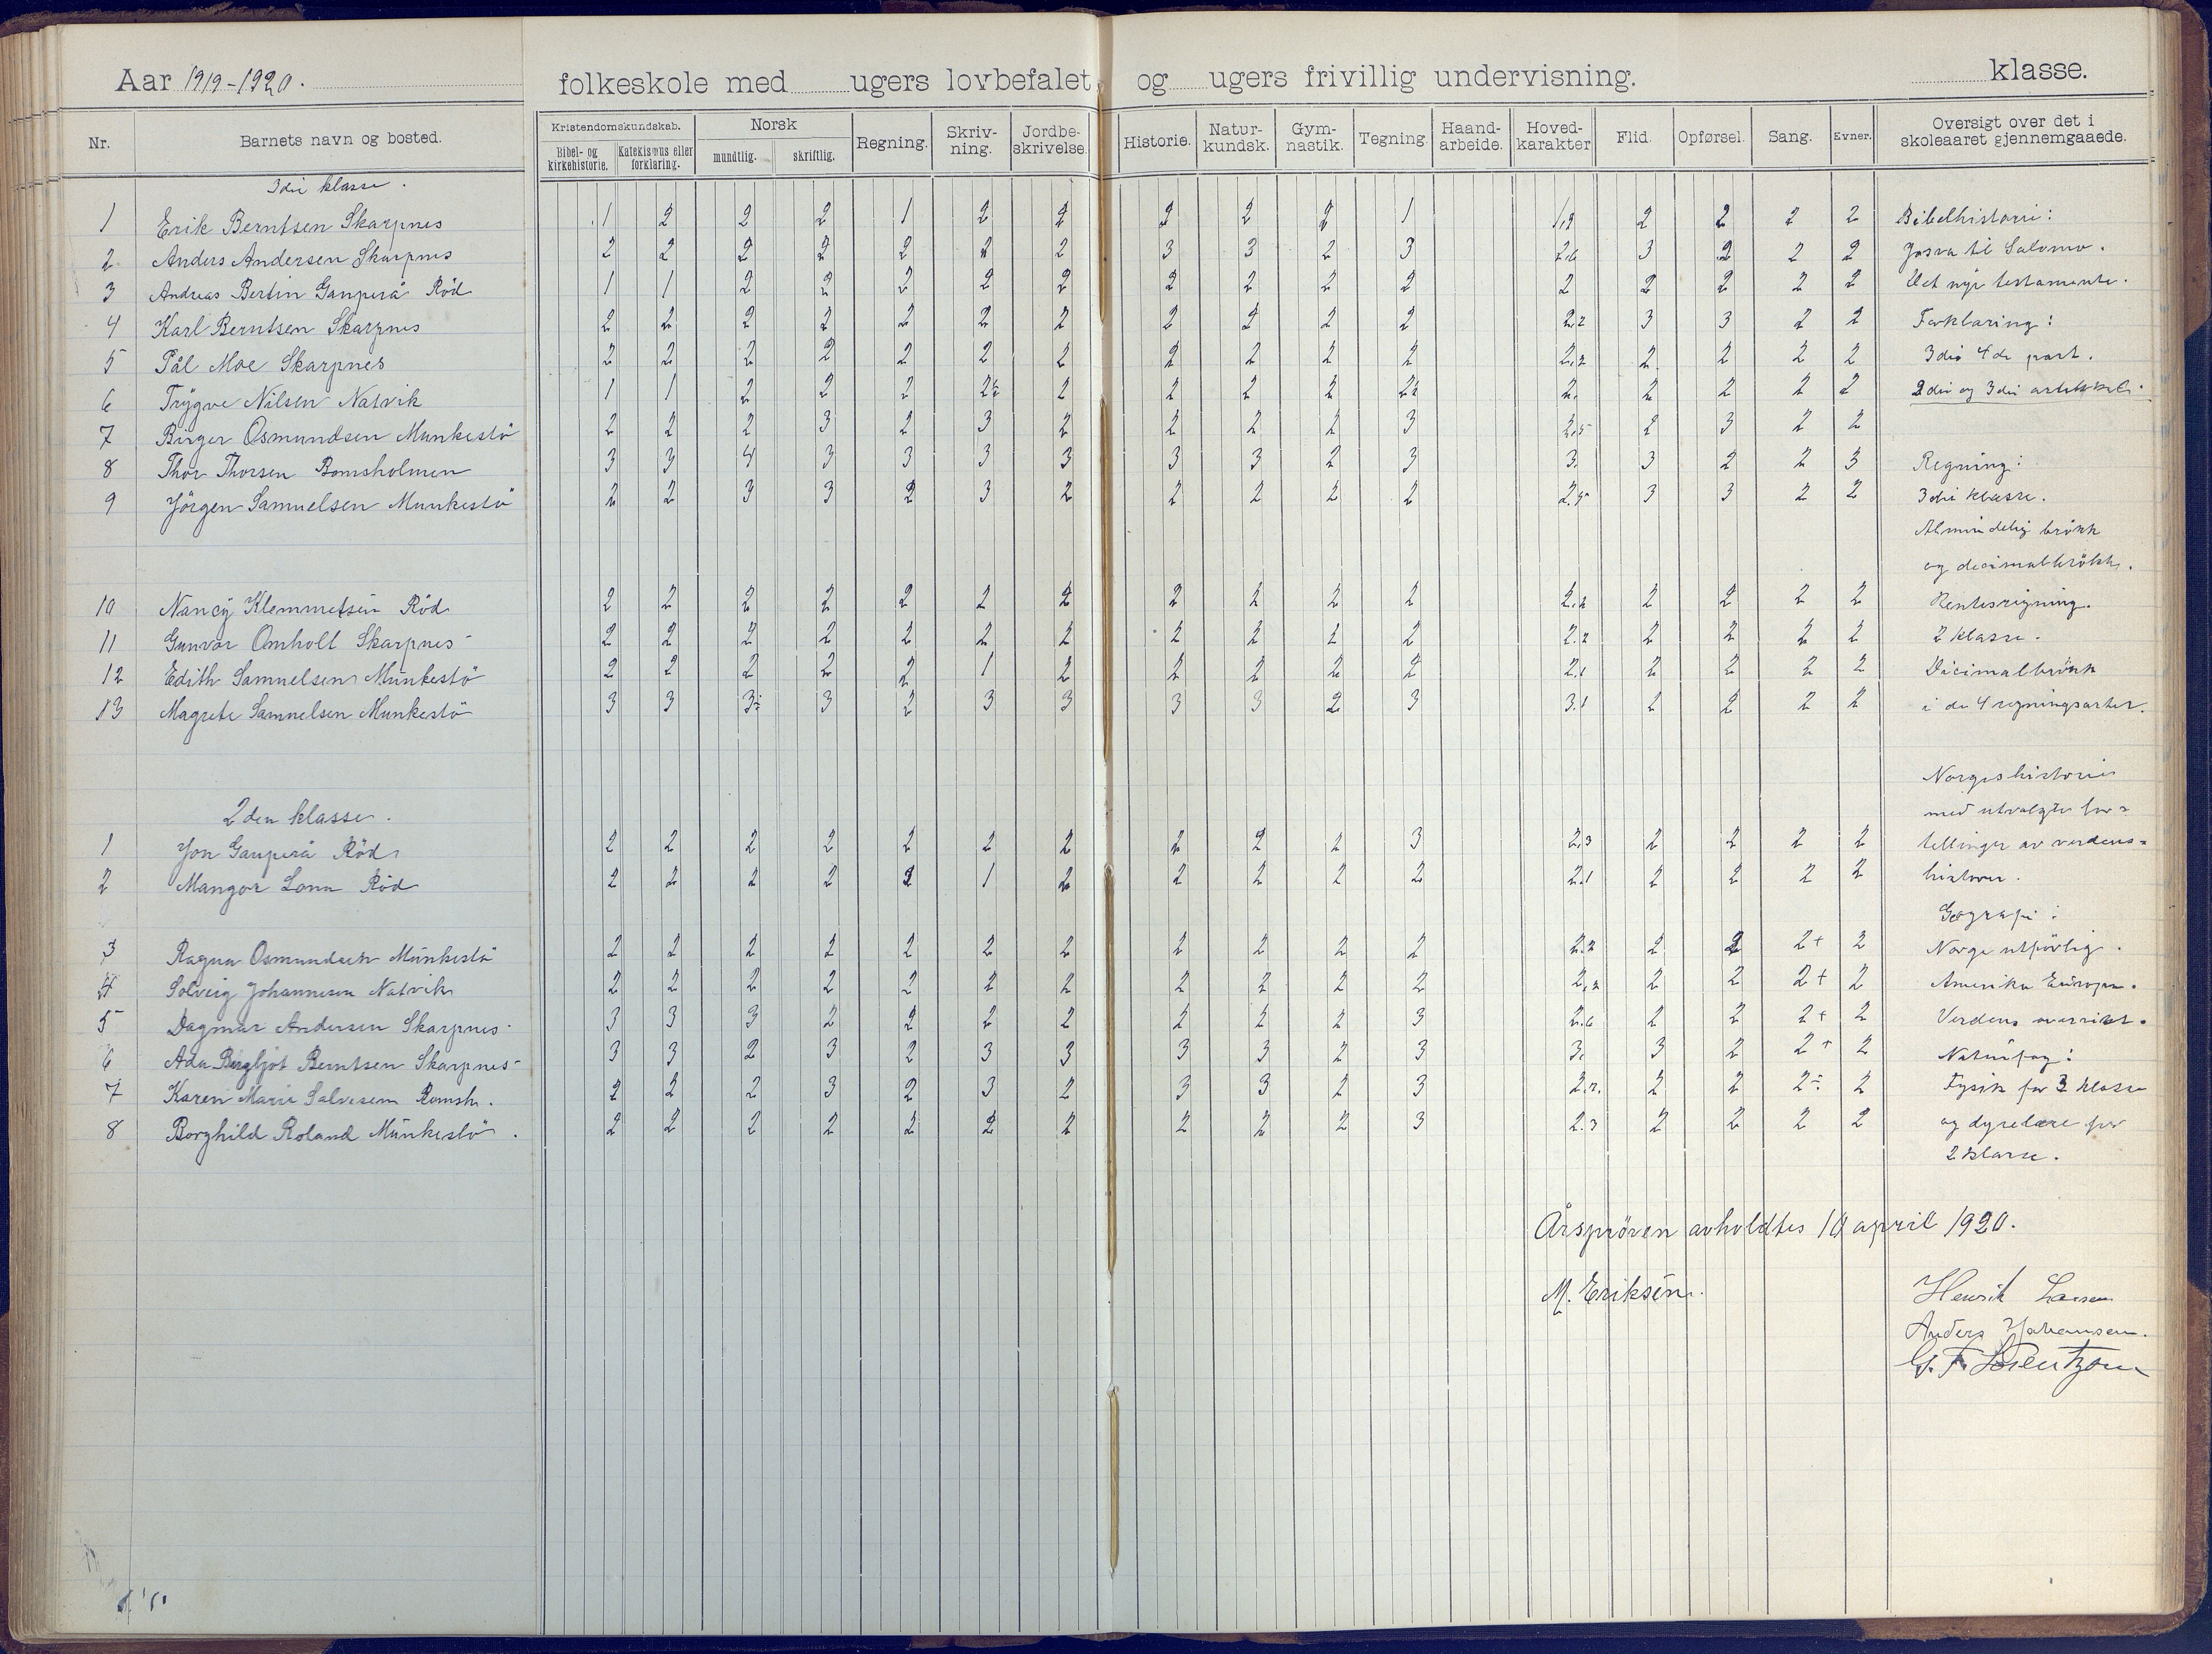 Aar 1919-1920. folkeskole med ugers lovbefalet og ugers frivillig undervisning. klasse.
Nr. Barnets navn og bosted. Kristendomskundskab. Bibel- og kirkehistorie. Katekismus eller forklaring. Norsk mundtlig. skriftlig. Regning. Skriv-ning. Jordbe-skrivelse. Historie. Natur-kundsk. Gym-nastik. Tegning. Haand-arbeide. Hoved-karakter Flid. Opførsel. Sang. Evner. Oversigt over det i skoleaaret gjennemgaaede.
3die klasse.
1 Erik Berntsen Skarpnes 1 2 2 2 1 2 2 2 2 2 1 1,9 2 2 2 2 Bibelhistorie:
2 Anders Andersen Skarpnes 2 2 2 2 2 2 2 3 3 2 3 2,6 3 2 2 2 Josva til Salomo.
3 Andreas Bertin Gauperå Röd 1 1 2 2 2 2 2 2 2 2 2 2 2 2 2 2 Det nye testamente.
4 Karl Berntsen Skarpnes 2 2 2 2 2 2 2 2 2 2 2 2.2 3 3 2 2 Forklaring:
5 Pål Moe Skarpnes 2 2 2 2 2 2 2 2 2 2 2 2,2 2 2 2 2 3die 4de part.
6 Trygve Nilsen Natvik 1 1 2 2 2 2÷ 2 2 2 2 2÷ 2. 2 2 2 2 2die og 3die artikkel.
7 Birger Osmundsen Munkestö 2 2 2 3 2 3 2 2 2 2 3 2,5 2 3 2 2
8 Thor Thorsen Bomsholmen 3 3 4 3 3 3 3 3 3 2 3 3. 3 2 2 3 Regning:
9 Jörgen Samuelsen Munkestö 2 2 3 3 2 3 2 2 2 2 2 2.5 3 3 2 2 3die klasse.
Almindelig brökk
og decimalbrökk.
10 Nancy Klemmetsen Röd 2 2 2 2 2 2 2 2 2 2 2 2.2 2 2 2 2 Rentesregning.
11 Gunvor Omholt Skarpnes 2 2 2 2 2 2 2 2 2 2 2 2.2 2 2 2 2 2 klasse.
12 Edith Samuelsen Munkestö 2 2 2 2 2 1 2 2 2 2 2 2.1 2 2 2 2 Decimalbrökk
13 Magrete Samuelsen Munkestö 3 3 3÷ 3 2 3 3 3 3 2 3 3.1 2 2 2 2 i de 4 regningsarter.
Norgeshistorie
2den klasse. med utvalgte for=
1 Jon Gauperå Röd 2 2 2 2 2 2 2 2 2 2 3 2,3 2 2 2 2 tellinger av verdens=
2 Mangor Lona Röd 2 2 2 2 2 1 2 2 2 2 2 2.1 2 2 2 2 historie.
Geografi:
3 Ragna Osmundsen Munkestö 2 2 2 2 2 2 2 2 2 2 2 2.2 2 2 2+ 2 Norge utförlig.
4 Solveig Johannesen Natvik 2 2 2 2 2 2 2 2 2 2 2 2,2 2 2 2+ 2 Amerika Europa.
5 Dagmar Andersen Skarpnes 3 3 3 2 2 2 2 2 2 2 3 2.6 2 2 2+ 2 Verdens oversikt.
6 Ada Bergljot Berntsen Skarpnes 3 3 2 3 2 3 3 3 3 2 3 3. 3 2 2+ 2 Naturfag:
7 Karen Marie Salvesen Bomsh. 2 2 2 3 2 3 2 3 3 2 3 2.7. 2 2 2÷ 2 Fysik for 3 klasse
8 Borghild Roland Munkestö. 2 2 2 2 2 2 2 2 2 2 3 2.3 2 2 2 2 og dyrelære for
2 klasse.
Årspröven avholdtes 10 april 1920.
M. Eriksen. Henrik Larsen
Anders Johansen.
G. F. Lorentzen